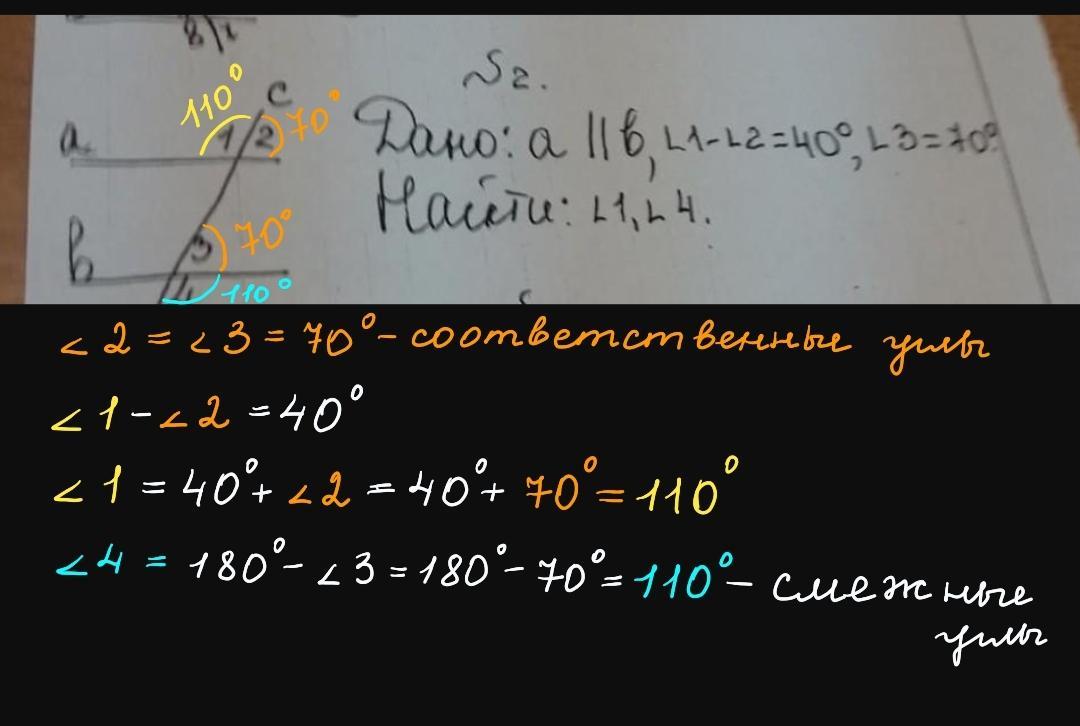 №2.
Дано: a || b, ∠1-∠2=40°, ∠3=70°.
Найти: ∠1, ∠4.
110°
c
a
1
2
70°
b
3
70°
4
110°
∠2 = ∠3 = 70° - соответственные углы
∠1 - ∠2 = 40°
∠1 = 40° + ∠2 = 40° + 70° = 110°
∠4 = 180° - ∠3 = 180° - 70° = 110° - смежные
углы